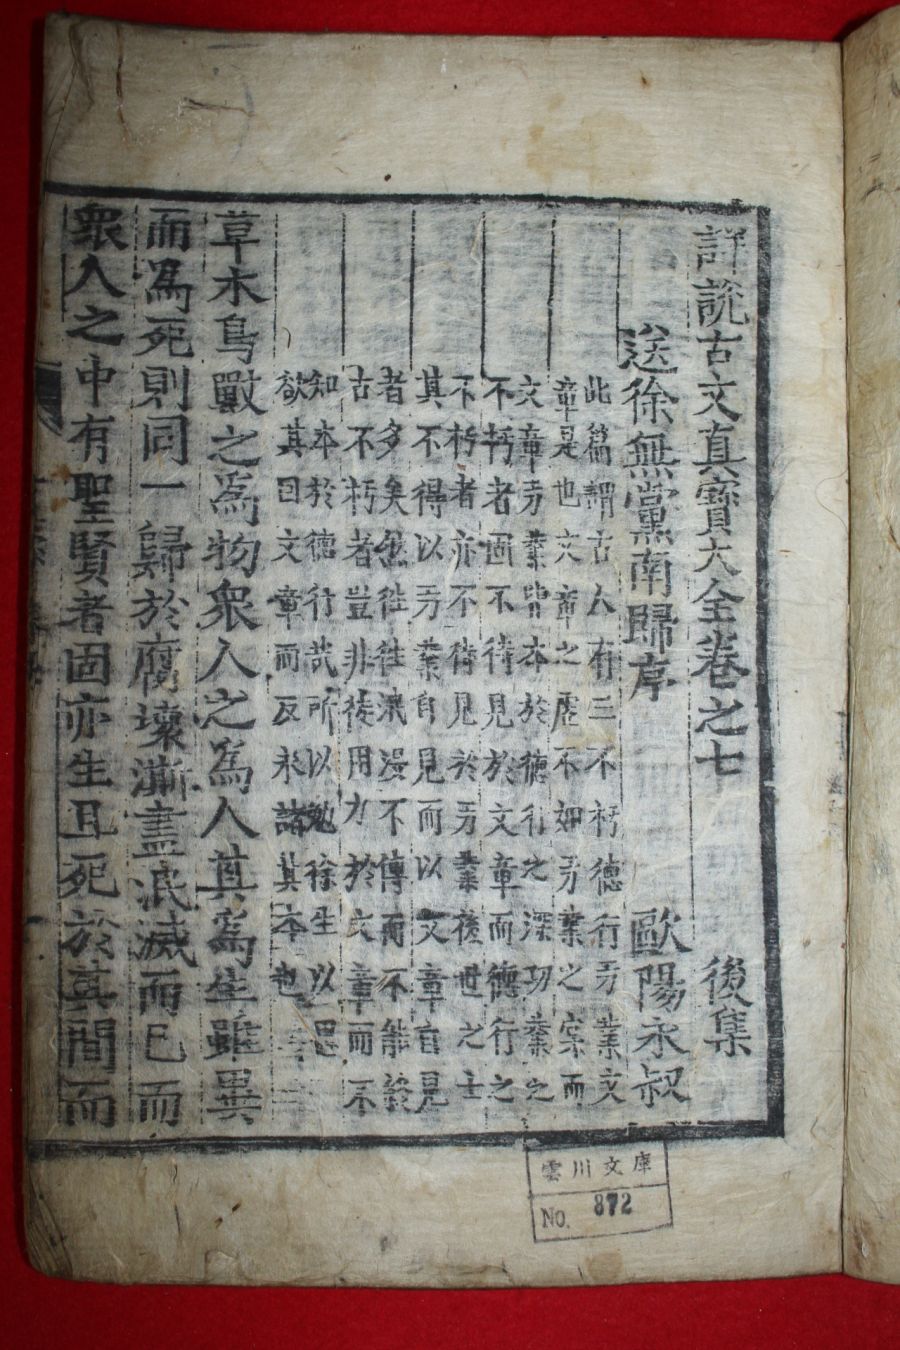 詳說古文真寶大全卷之七　後集
送徐無黨南歸序　歐陽永叔
此篇謂古人有三不朽德行功業文
章是也文章之虛不如功業之實而
文章功業皆本於德行之深功業之
不朽者固不待見於文章而德行之
不朽者亦不待見於功業後世之士
其不得以功業自見而以文章自見
者多矣然往往泯漫不傳而不能終
古不朽者豈非徒用力於文章而不
知本於德行哉所以勉徐生以思
欲其因文章而反求諸其本也
草木鳥獸之爲物衆人之爲人其爲生雖異
而爲死則同一歸於腐壞澌盡泯滅而已而
衆人之中有聖賢者固亦生且死於其間而
雲川文庫
No. 872